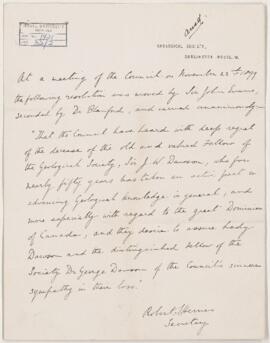 GEOLOGICAL SOCIETY,
BURLINGTON HOUSE, W.
At a meeting of the Council on November 22nd 1899
the following resolution was moved by Sir John Evans,
seconded by Dr Blanford, and carried unanimously:-
"That the Council have heard with deep regret
of the decease of the old and valued Fellow of
the Geological Society, Sir J. W. Dawson, who for
nearly fifty years has taken an active part in
advancing Geological knowledge in general, and
more especially with regard to the great Dominion
of Canada, and they desire to assure Lady
Dawson and the distinguished Fellow of the
Society Dr George Dawson of the Council's sincere
sympathy in their loss."
Robert Herries
Secretary